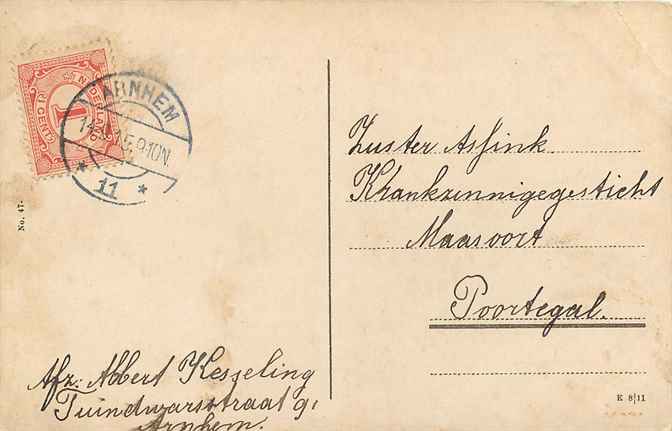 NEDERLAND
1
CENT
ARNHEM
11
No. 47.
Zuster Assink
Krankzennigegesticht
Maasoort
Poortegal.
Afz: Albert Kesseling
Tuindwarsstraat 9,
Arnhem.
K 8/11